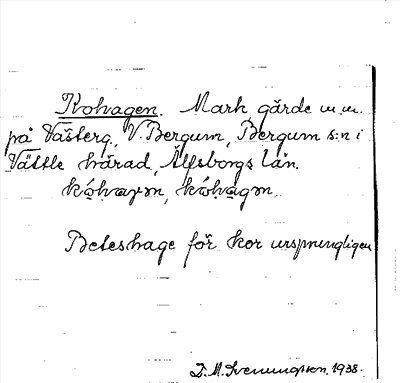 Kohagen. Mark gärde m.m.
på Västerg., V. Bergum, Bergum s:n i
Vättle härad, Älfsborgs län.
kóhaγən, kóhagən.
Beteshage för kor ursprungligen
D. M. Svenungsson. 1938.